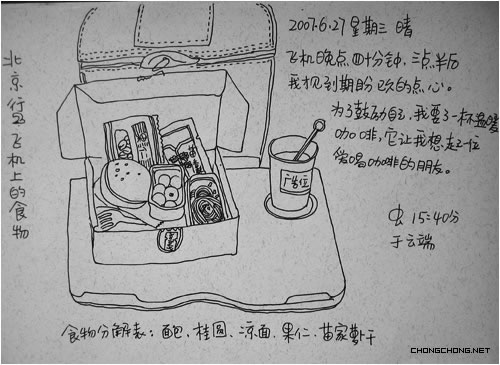 北京行 飞机上的食物
2007.6.27 星期三 晴
飞机晚点四十分钟，三点半后
我报到期盼已久的点心。
为了鼓励自己，我要了一杯温暖
咖啡，它让我想起了一位
能喝咖啡的朋友。
虫 15:40分
于云端
广告位
食物分解表：面包、桂圆、凉面、果仁、苗家萝卜干
CHONGCHONG.NET